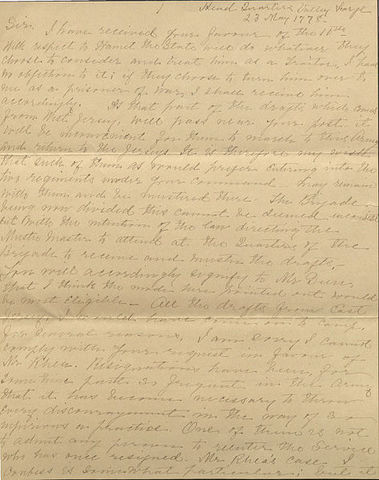 Head Quarters Valley Forge
23 May 1778.
Sir. I have received your favour of the 18th
With respect to Hamet the State will do whatever they
choose to consider and treat him as a Traitor, I have
no objection to it; if they choose to turn him over to
me as a prisoner of War, I shall receive him
accordingly. As that part of the drafts which come
from West Jersey, will pass near your post it
will be inconvenient for them to march to this Army
and return to the Jerseys It is therefore my wish
that such of them as would prefer entering into the
two regiments under your command may remain
with them and be mustered there. The Brigade
being now divided this cannot be deemed
with the intention of the law directing the
Muster Master to attend at the Quarters of the
Brigade to receive and muster the drafts.
You will accordingly signify to Mr
that I think the mode here pointed out would
be most eligible. All the drafts from East
Jersey should have come on to camp.
For several reasons, I am sorry I cannot
comply with your request in favour of
Mr Rhea. Resignations have been for
some time past so frequent in the Army
that it has become necessary to throw
every discouragement in the way of
in practice. One of them is not
to admit any person to reenter the service
who has once resigned. Mr. Rhea's case, I
confess is somewhat particular; but at